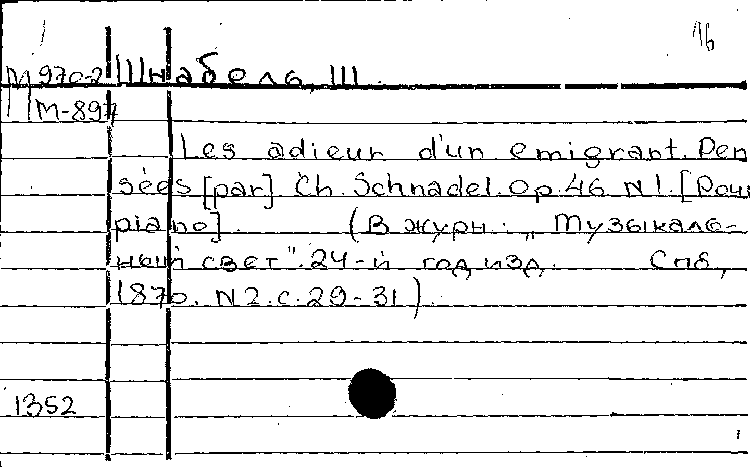 96
М 970-2 Шнабель, Ш.
М-897
Les adieux d'un emigrant. Pen
sées [par] Ch. Schnadel. Op. 46 N 1. [Pour
piano]. (В журн.: „Музыкаль-
ный свет". 24-й год изд. Спб,
1870. N 2. с. 29-31).
1352